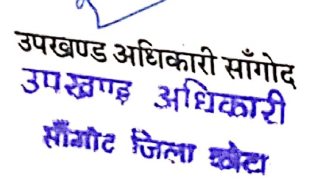 उपखण्ड अधिकारी साँगोद
उपखण्ड अधिकारी
साँगोद जिला कोटा